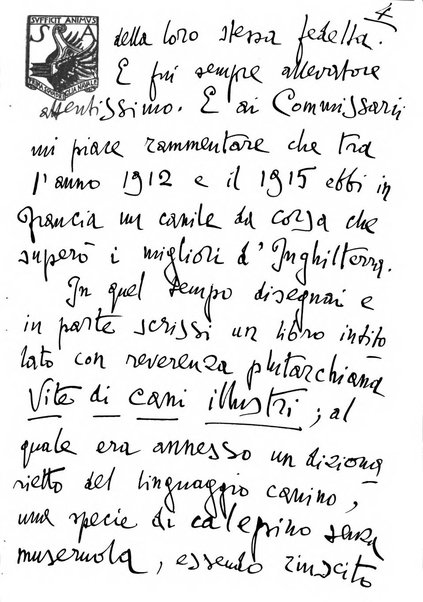 4
SVFFICIT ANIMVS
della loro stessa fedeltà.
E fui sempre allevatore
attentissimo. E ai Commissarii
mi piace rammentare che tra
l'anno 1912 e il 1915 ebbi in
Francia un canile da corsa che
superò i migliori d'Inghilterra.
In quel tempo disegnai e
in parte scrissi un libro intito
lato con reverenza plutarchiana
Vite di cani illustri; al
quale era annesso un diziona
rietto del linguaggio canino,
una specie di calepino senza
museruola, essendo riuscito